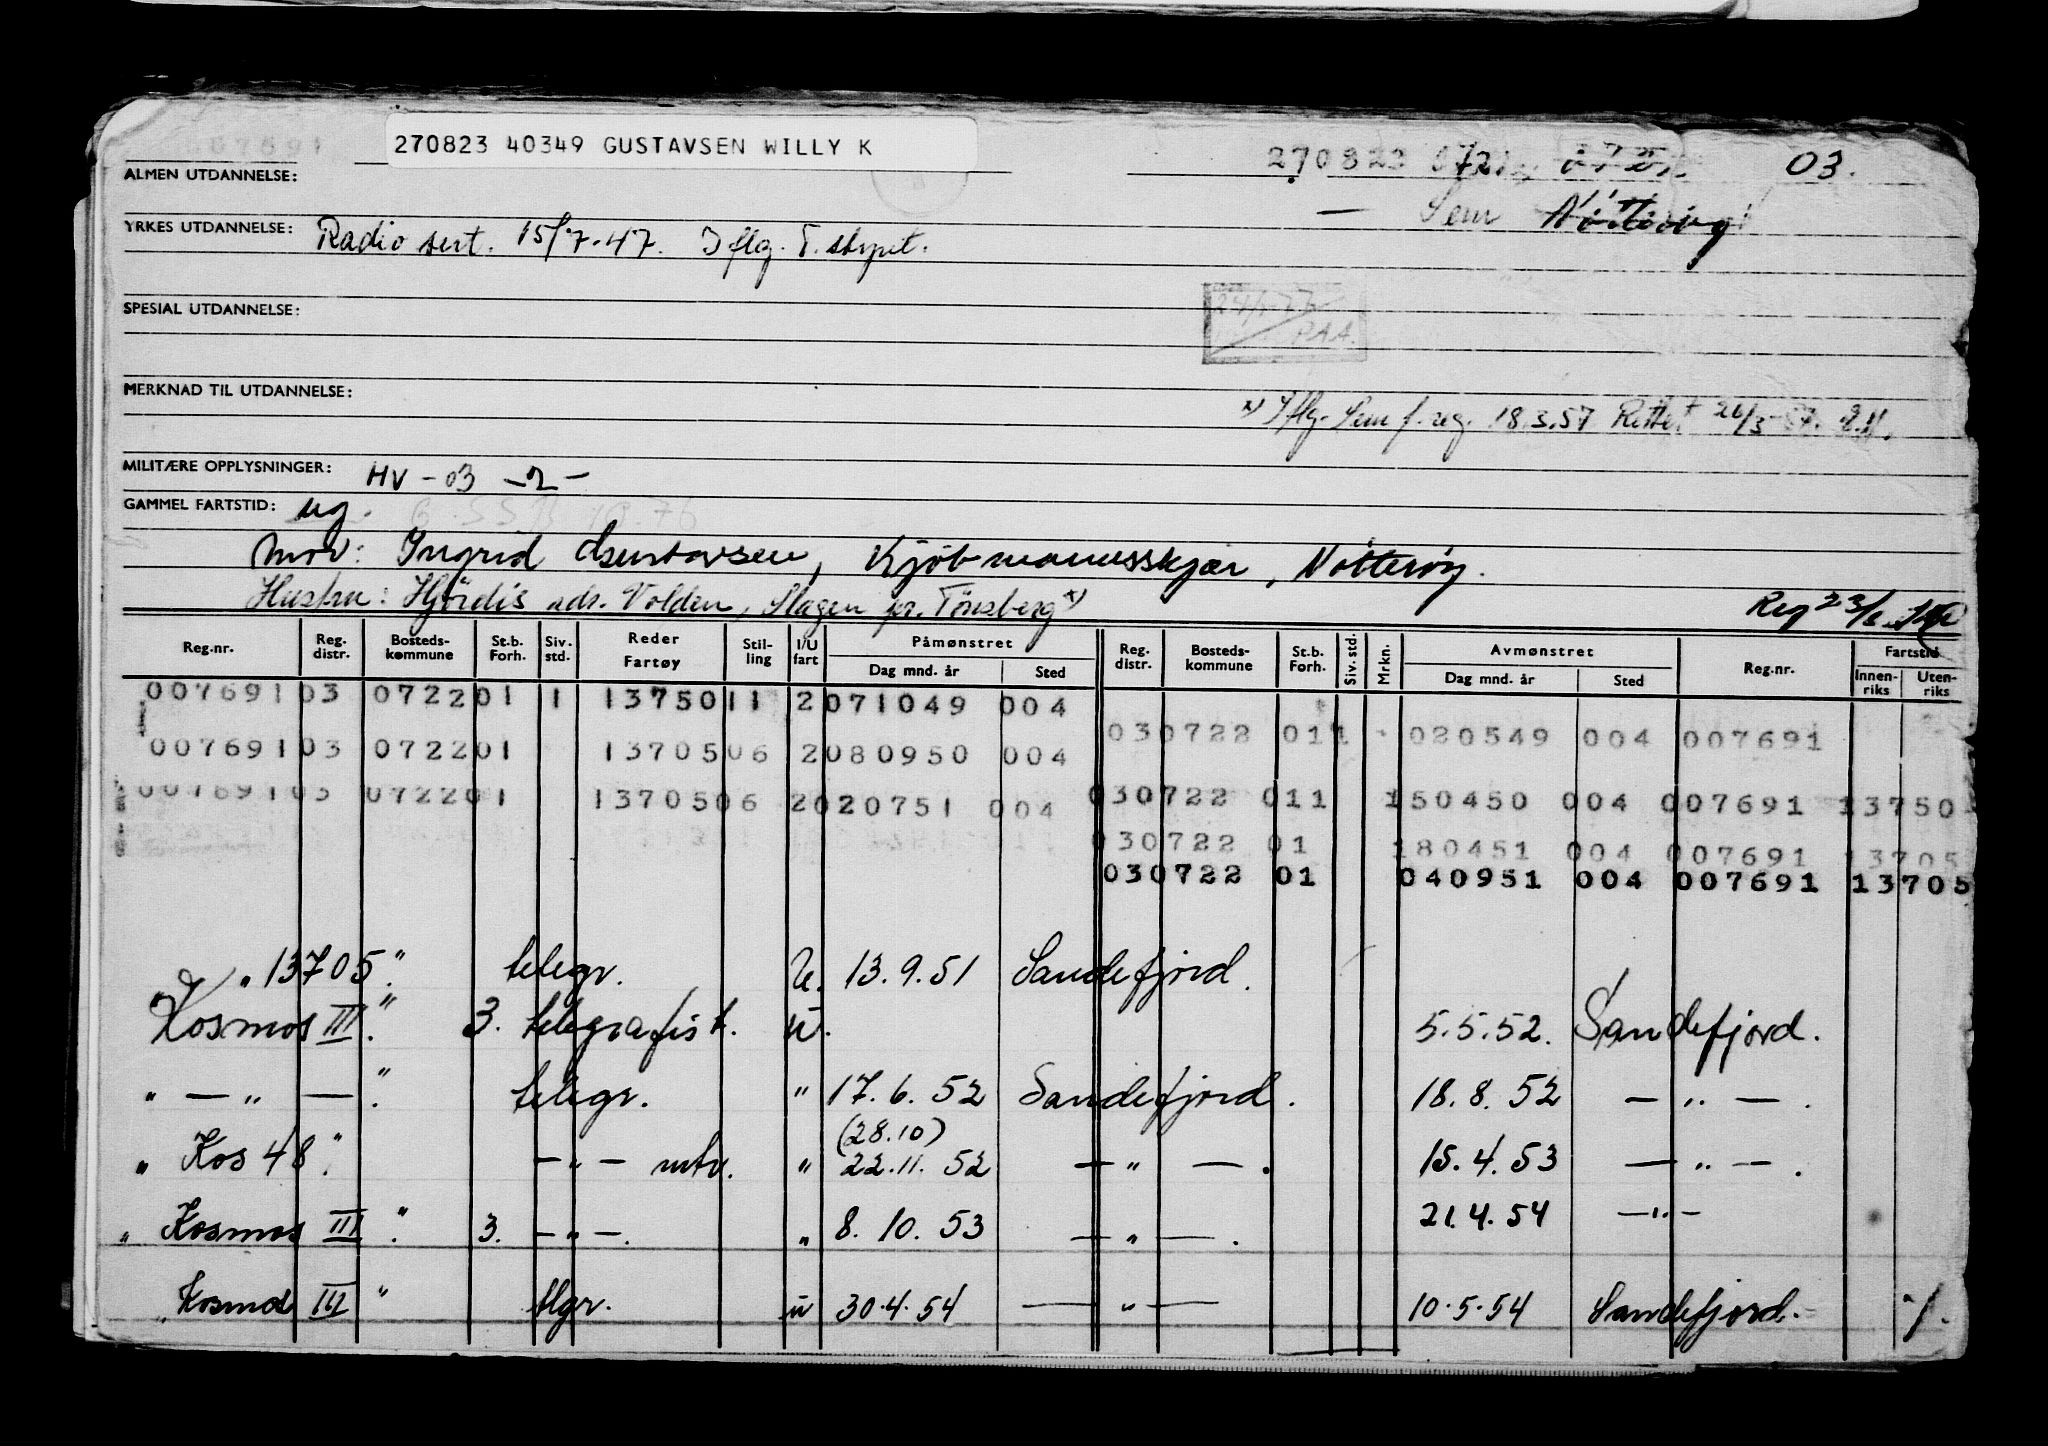 007691
270823 40349 GUSTAVSEN WILLY K
270823 03.
ALMEN UTDANNELSE:
Sem Nötteröy
YRKES UTDANNELSE: Radio sert. 15/7-47. Iflg. T. skpet.
SPESIAL UTDANNELSE:
PAA.
MERKNAD TIL UTDANNELSE:
x) Iflg. Sem f. reg. 18.3.57 Rettet 26/3-57.
MILITÆRE OPPLYSNINGER: HV - 03 - 2 -
GAMMEL FARTSTID: ug.
Mor: Ingrid Gustavsen, Kjøbmannsskjær, Nötteröy.
Hustru: Hjördis adr. Volden, Slagen pr. Tönsberg x)
Reg 23/
Reg.nr. Reg. distr. Bosteds-kommune St.b. Forh. Siv. std. Reder Fartøy Stil-ling I/U fart Påmønstret Dag mnd. år Sted Reg. distr. Bosteds-kommune St.b. Forh. Siv. std. Mrkn. Avmønstret Dag mnd. år Sted Reg.nr. Fartstid Innen-riks Uten-riks
007691 03 0722 01 1 13750 11 2 071049 004
03 0722 01 1 020549 004 007691
007691 03 0722 01 13705 06 2 080950 004
007691 03 0722 01 13705 06 2 020751 004
03 0722 01 1 150450 004 007691 13750
03 0722 01 180451 004 007691 13705
03 0722 01 040951 004 007691 13705
" 13705 " telegr. u. 13.9.51 Sandefjord.
Kosmos III " 3. telegrafist. u. 5.5.52. Sandefjord.
" — " — " telegr. " 17.6.52 Sandefjord. 18.8.52 — " — .
(28.10)
" Kos 48 " — " — mtr. " 22.11.52 — " — . 15.4.53 — " — .
" Kosmos III " 3. — " — . " 8.10.53 — " — . 21.4.54 — " —
" Kosmos III " tlgr. u 30.4.54 — " — 10.5.54 Sandefjord. -/.